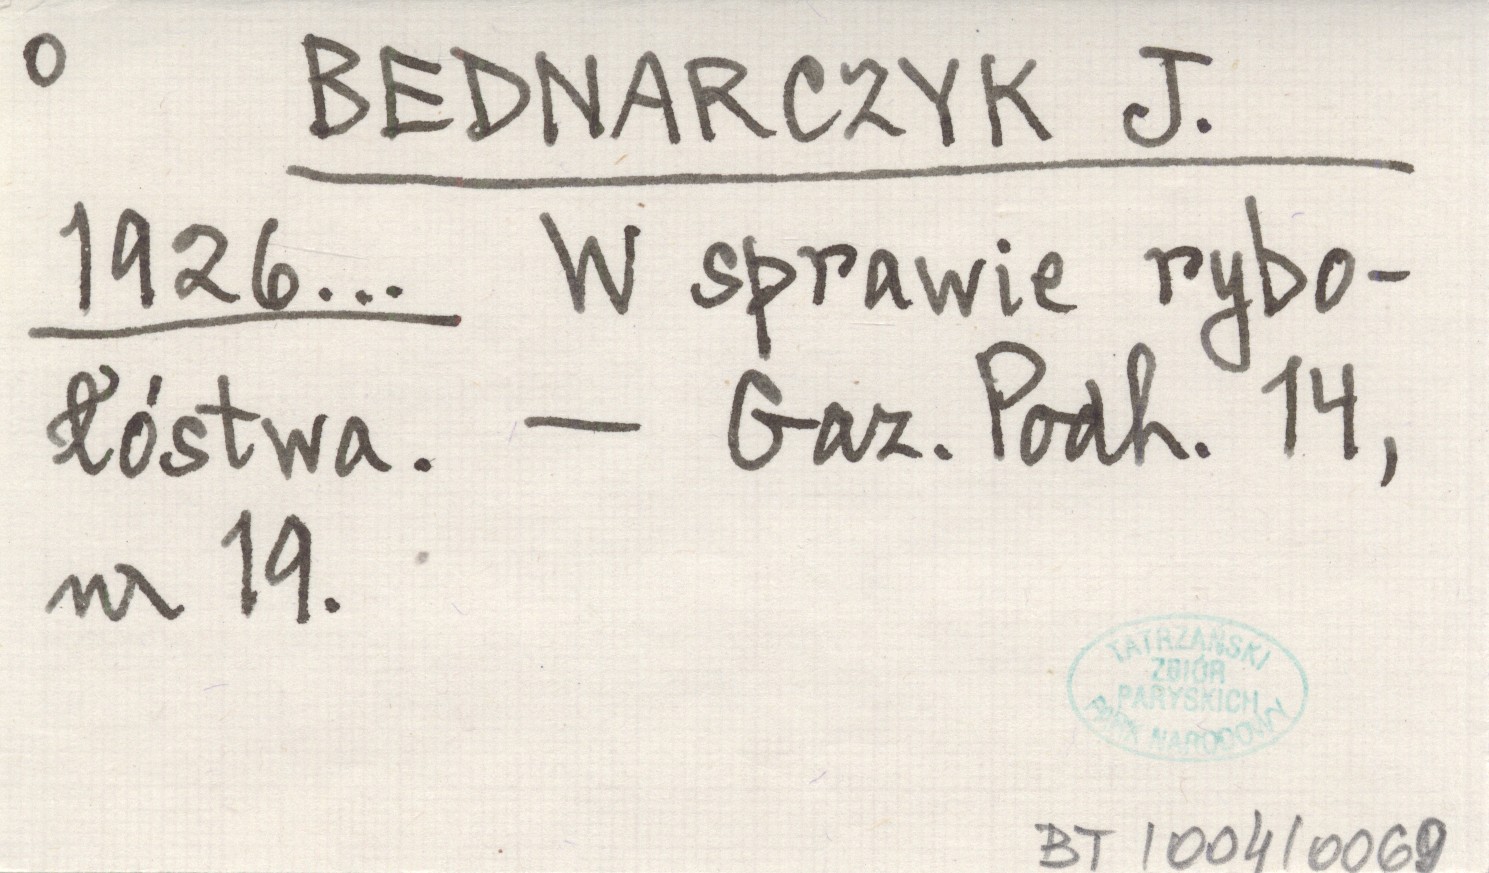 o BEDNARCZYK J.
1926... W sprawie rybo-
łóstwa. — Gaz. Podh. 14,
nr 19.
TATRZAŃSKI
ZBIÓR
PARYSKICH
PARK NARODOWY
BT /004/0069